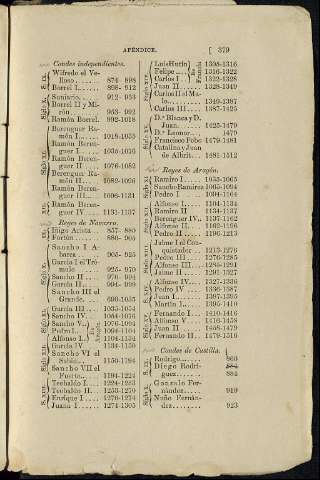 APÉNDICE. [ 379
Condes independientes.
Wifredo el Ve-
lloso 874- 898
Borrel I 898- 912
Suniario 912- 953
Borrel II y Mi-
rón 953- 992
Ramón Borrel. 992-1018
Berenguer Ra-
món I 1018-1035
Ramón Beren-
guer I 1035-1076
Ramón Beren-
guer II 1076-1082
Berenguer Ra-
món II 1082-1096
Ramón Beren-
guer III 1096-1131
Ramón Beren-
guer IV 1131-1137
Reyes de Navarra.
Iñigo Arista 857- 880
Fortún 880- 905
Sancho I A-
barca 905- 925
García I el Tré-
mulo 925- 970
Sancho II 970- 994
García II 994- 999
Sancho III el
Grande
García III 1035-1054
Sancho IV 1054-1076
Sancho V 1076-1094
Pedro I 1094-1104
Alfonso I 1104-1134
García IV 1134-1150
Sancho VI el
Sabio 1150-1194
Sancho VII el
Fuerte 1194-1224
Teobaldo I 1224-1253
Teobaldo II 1253-1270
Enrique I 1270-1274
Juana I 1274-1305
Luis Hutín 1305-1316
Felipe 1316-1322
Carlos I 1322-1328
Juan II 1328-1349
Carlos II el Ma-
lo 1349-1387
Carlos III 1387-1425
D.ª Blanca y D.
Juan 1425-1479
D.ª Leonor 1479
Francisco Febo 1479-1481
Catalina y Juan
de Albrit 1481-1512
Reyes de Aragón.
Ramiro I 1035-1065
Sancho Ramírez 1065-1094
Pedro I 1094-1104
Alfonso I 1104-1134
Ramiro II 1134-1137
Berenguer IV 1137-1162
Alfonso II 1162-1196
Pedro II 1196-1213
Jaime I el Con-
quistador 1213-1276
Pedro III 1276-1285
Alfonso III 1285-1291
Jaime II 1291-1327
Alfonso IV 1327-1336
Pedro IV 1336-1387
Juan I 1387-1395
Martín I 1395-1410
Fernando I 1410-1416
Alfonso V 1416-1458
Juan II 1458-1479
Fernando II 1479-1516
Condes de Castilla.
Rodrigo 860
Diego Rodrí-
guez 884
Gonzalo Fer-
nández 910
Nuño Fernán-
dez 923